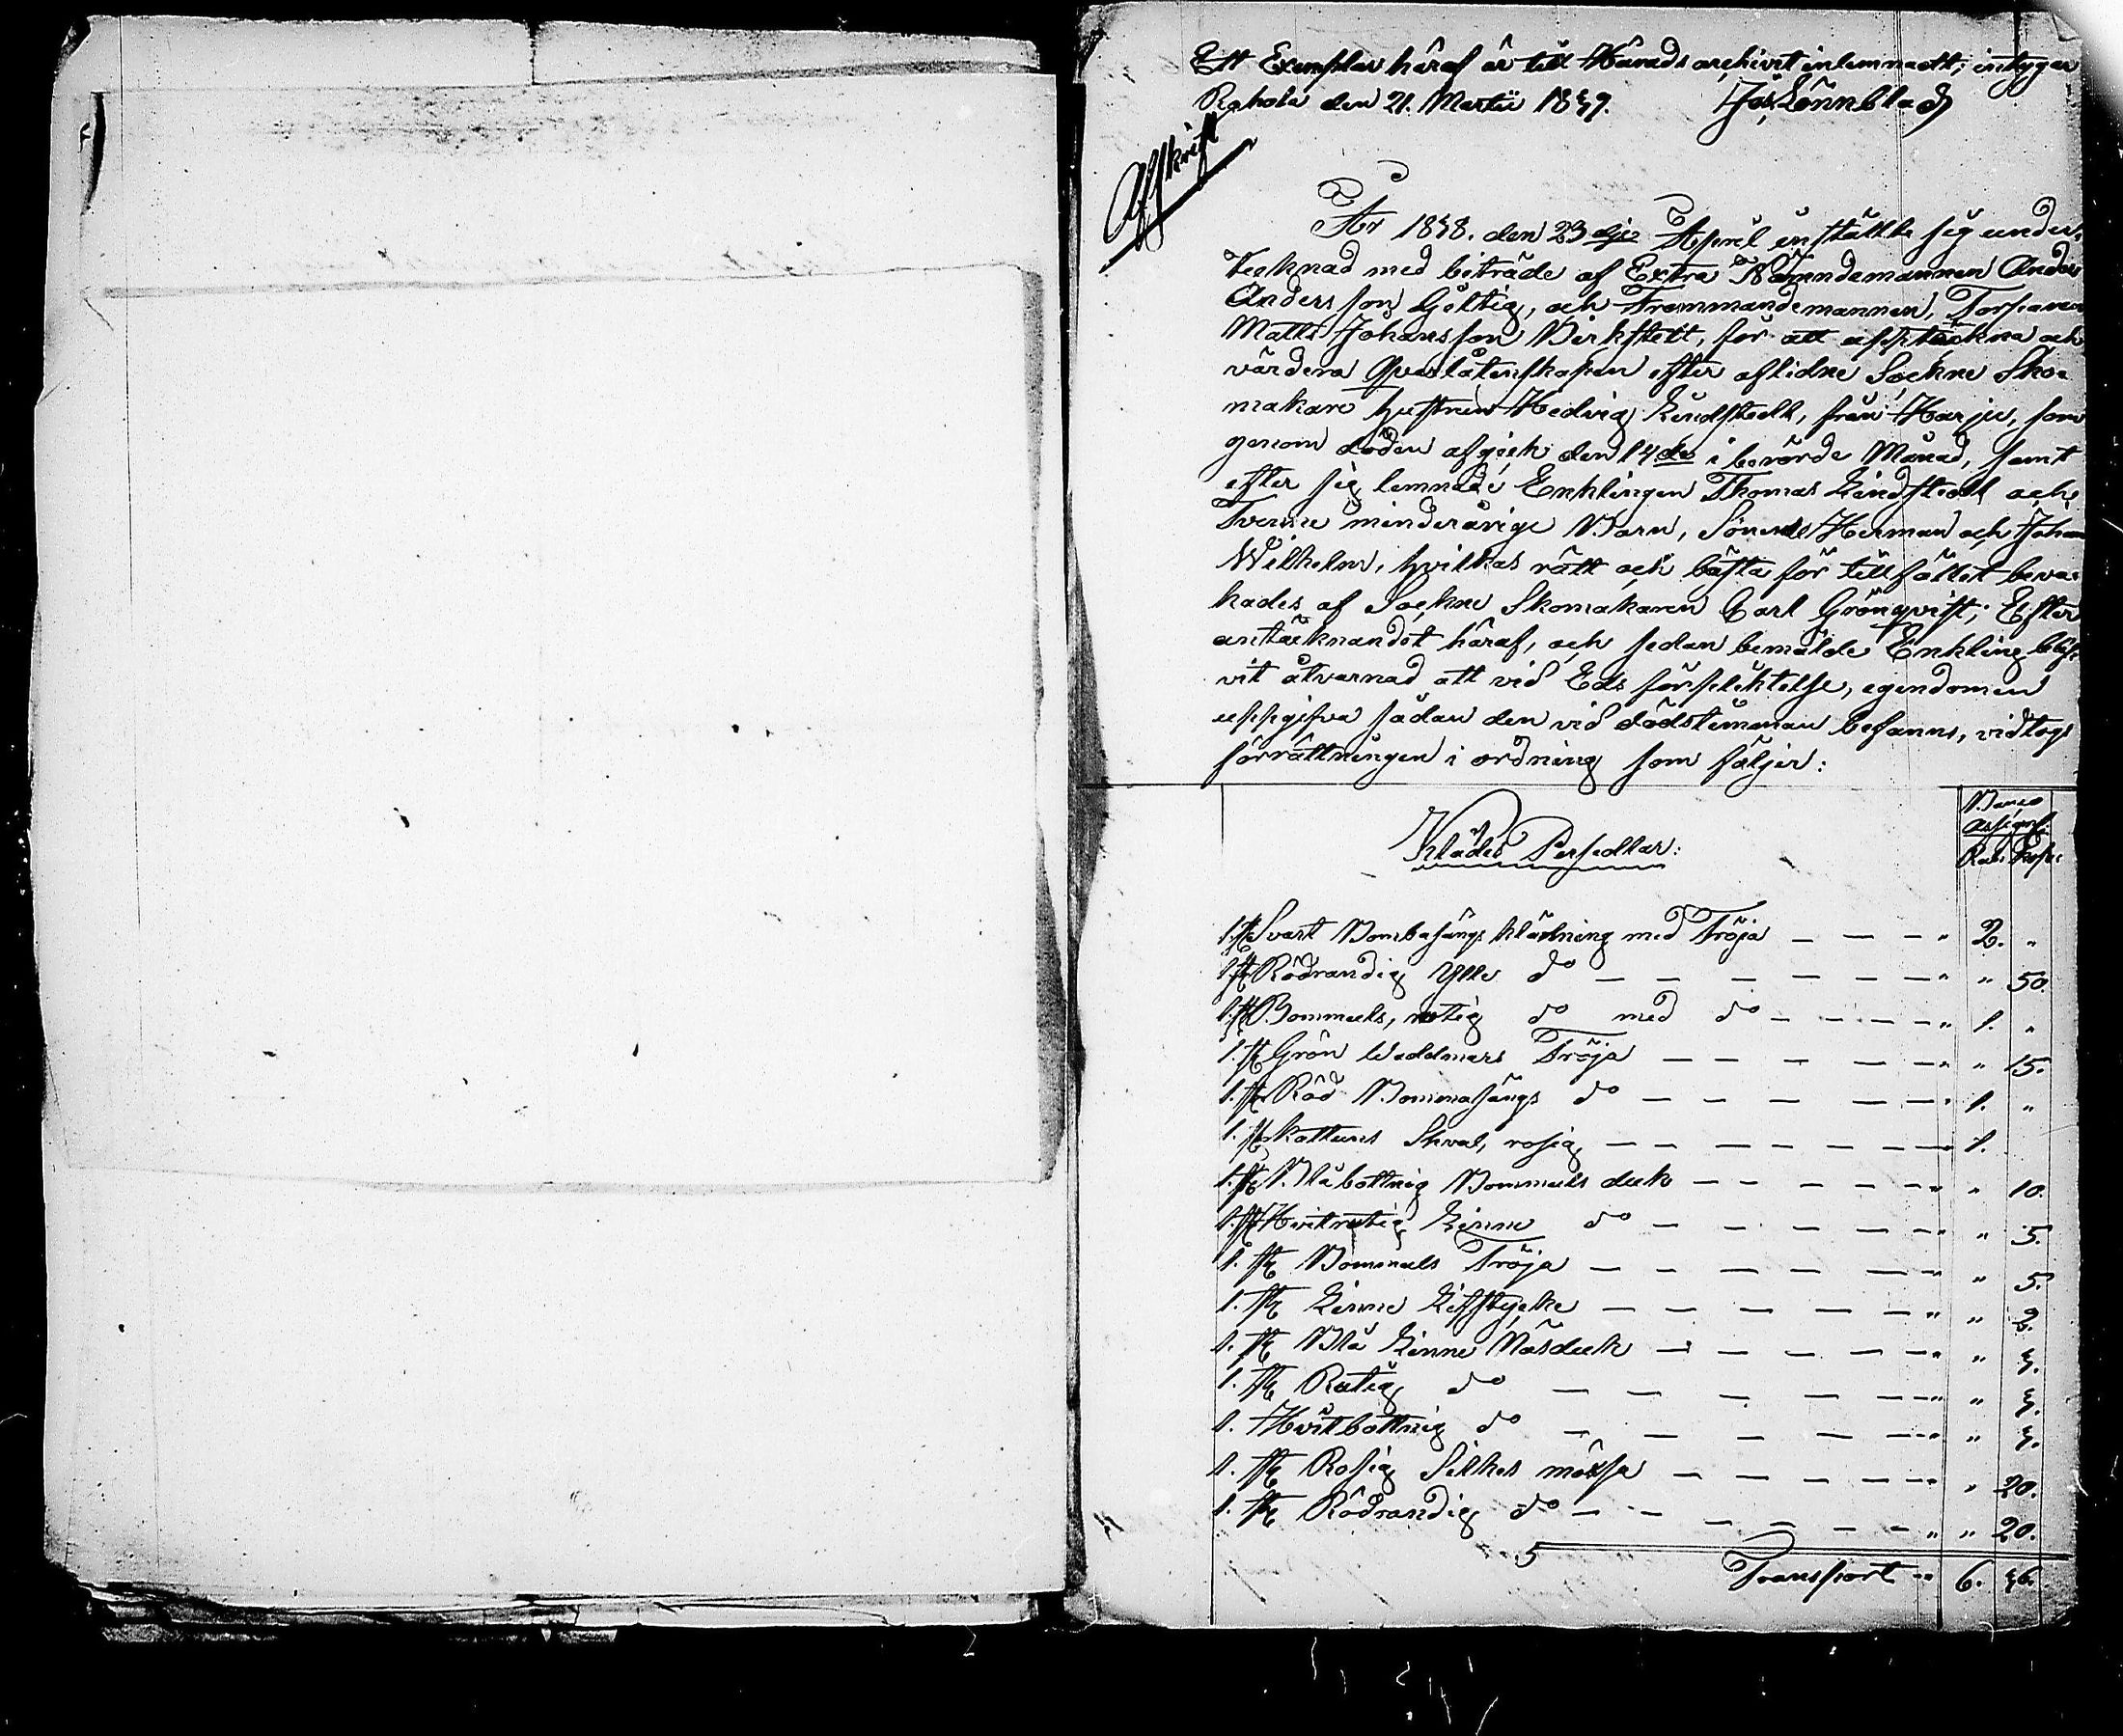 Ett Exemplar häraf är till Härads archivet inlemnadt; intygar
den 21. Martii 1849. Lönnblad
Afskrift
År 1848. den 23dje April instälte sig under-
tecknad med biträde af Extra Nämndemannen Anders
Andersson Göltig, och Frammandemannen, Torparen
Matts Johansson Birkstett, för att uppteckna och
värdera Qvarlåtenskapen efter aflidne Sockne Sko-
makare hustrun Hedvig Lindstedt, från Harju, som
genom döden afgick den 14de i berörde Månad, samt
efter sig lemnade Enklingen Thomas Lindstedt och
Tvenne minderårige Barn, Sönerne Herman och Johan
Wilhelm, hvilkas rätt och bästa för tillfället beva-
kades af Sockne Skomakaren Carl Grönqvist; Efter
antecknandet häraf, och sedan bemälde Enkling blif-
vit åtvarnad att vid Eds förpliktelse, egendomen
uppgifva sådan den vid dödstimman befanns, vidtogs
förrättningen i ordning som följer:
Banco
Assign:
Rub: Kop:
Klädes Persedlar:
1. st Svart Bombasängs klädning med Tröja — — — " 2. "
1. st Rödrandig Ylle do — — — — — — " " 50.
1. st Bommuls, rutig do med do — — — — " 1. "
1. st Grön Waddmars Tröja — — — — — " " 15.
1. st Röd Bommasängs do — — — — — " 1. "
1. st Kattuns Shval, rosig — — — — — — 1.
1. st Blåbottnig Bommuls duk — — — — — " " 10.
1. st Hvitrutig Linne do — — — — — — " " 5.
1. st Bommuls Tröja — — — — — — " " 5.
1. st Linne Lifstycke — — — — — — " " 2.
1. st Blå Linne Näsduk — — — — — " " 4.
1. st Rutig do — — — — — — " " 4.
1. Hvitbottnig do — — — — — " " 4.
1. st Rosig Silkes mössa — — — — — " " 20.
1. st Rödrandig do — — — — — — " " 20.
Transport " 6. 46.